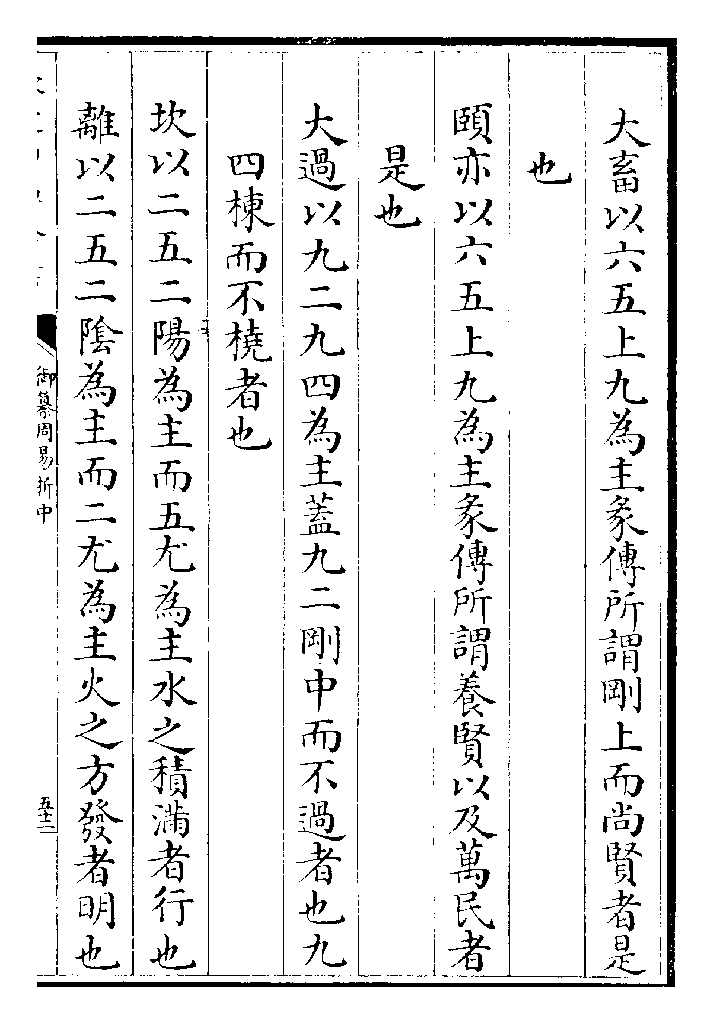 大畜以六五上九為主彖傳所謂剛上而尚賢者是
也
頤亦以六五上九為主彖傳所謂養賢以及萬民者
是也
大過以九二九四為主蓋九二剛中而不過者也九
四棟而不橈者也
坎以二五二陽為主而五尤為主水之積滿者行也
離以二五二陰為主而二尤為主火之方發者明也
御纂周易折中
五十二